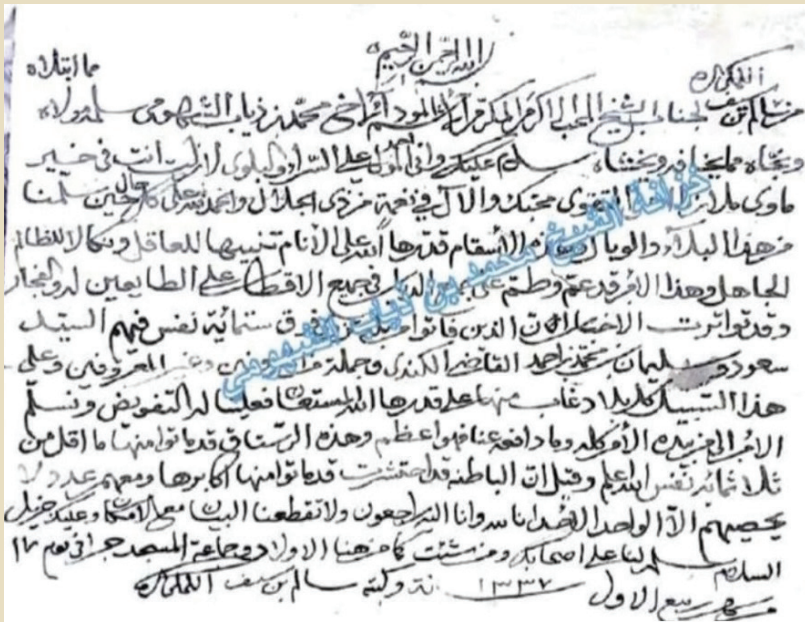 بسم الله الرحمن الرحيم
من سالم بن سيف اللمكي لجناب الشيخ المحب الاكرم المكرم الاخ محمد بن ذياب الشهومي سلمه مولاه مما ابتلاه
ونجاه مما يخافه ويخشاه سلام عليك واني احمد المولى على السراء والبلوى لا زلت انت في خير
ماوى ملازم التقوى محبك والآل في نعمة من ذي الجلال والحمد لله على كل حال حين سلمنا
من هذا البلاء والوبال الاسقام قدرها الله على الأنام تنبيها للعاقل ونكالا للظالم
الجاهل وهذا الامر قد عم وطم على جميع الديار في جميع الاقطار على الطايعين له والفجار
وقد تواترت الاخبار ان الذين ماتوا فوق ستمائة نفس فيهم السيد
سعود وسليمان بن محمد بن احمد القاضي الكندي وجملة من المعروفين وغير المعروفين وعلى
هذا السبيل كل بلاد غاب منها على قدرها الله المستعان فعلينا له التفويض ونسلم
الامر الى من بيده الأمر كله وما دافعه عنا فهو اعظم وهذه الرستاق قد ماتوا منها ما اقل من
ثلاثمائة نفس الله اعلم وقيل ان الباطنه قد احتشرت قد ماتوا منها اكابرها ومعهم عدد لا
يحصيهم الا الواحد الأحد انا لله وانا اليه راجعون ولا تقطعنا البيان مع الامكان وعليك جزيل
السلام سلم لنا على اصحابك ومن شئت كما من هنا الاولاد وجماعة المسجد حرر في يوم ١٢
من شهر ربيع الاول ١٣٣٧ سنة وكتبه سالم بن سيف اللمكي
خزانة الشيخ محمد بن ذياب الشهومي